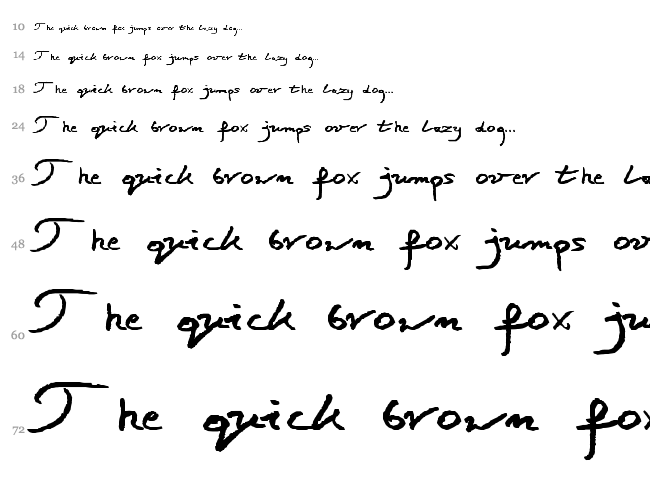 10 The quick brown fox jumps over the lazy dog...
14 The quick brown fox jumps over the lazy dog...
18 The quick brown fox jumps over the lazy dog...
24 The quick brown fox jumps over the lazy dog...
36 The quick brown fox jumps over the la
48 The quick brown fox jumps ov
60 The quick brown fox ju
72 The quick brown fox